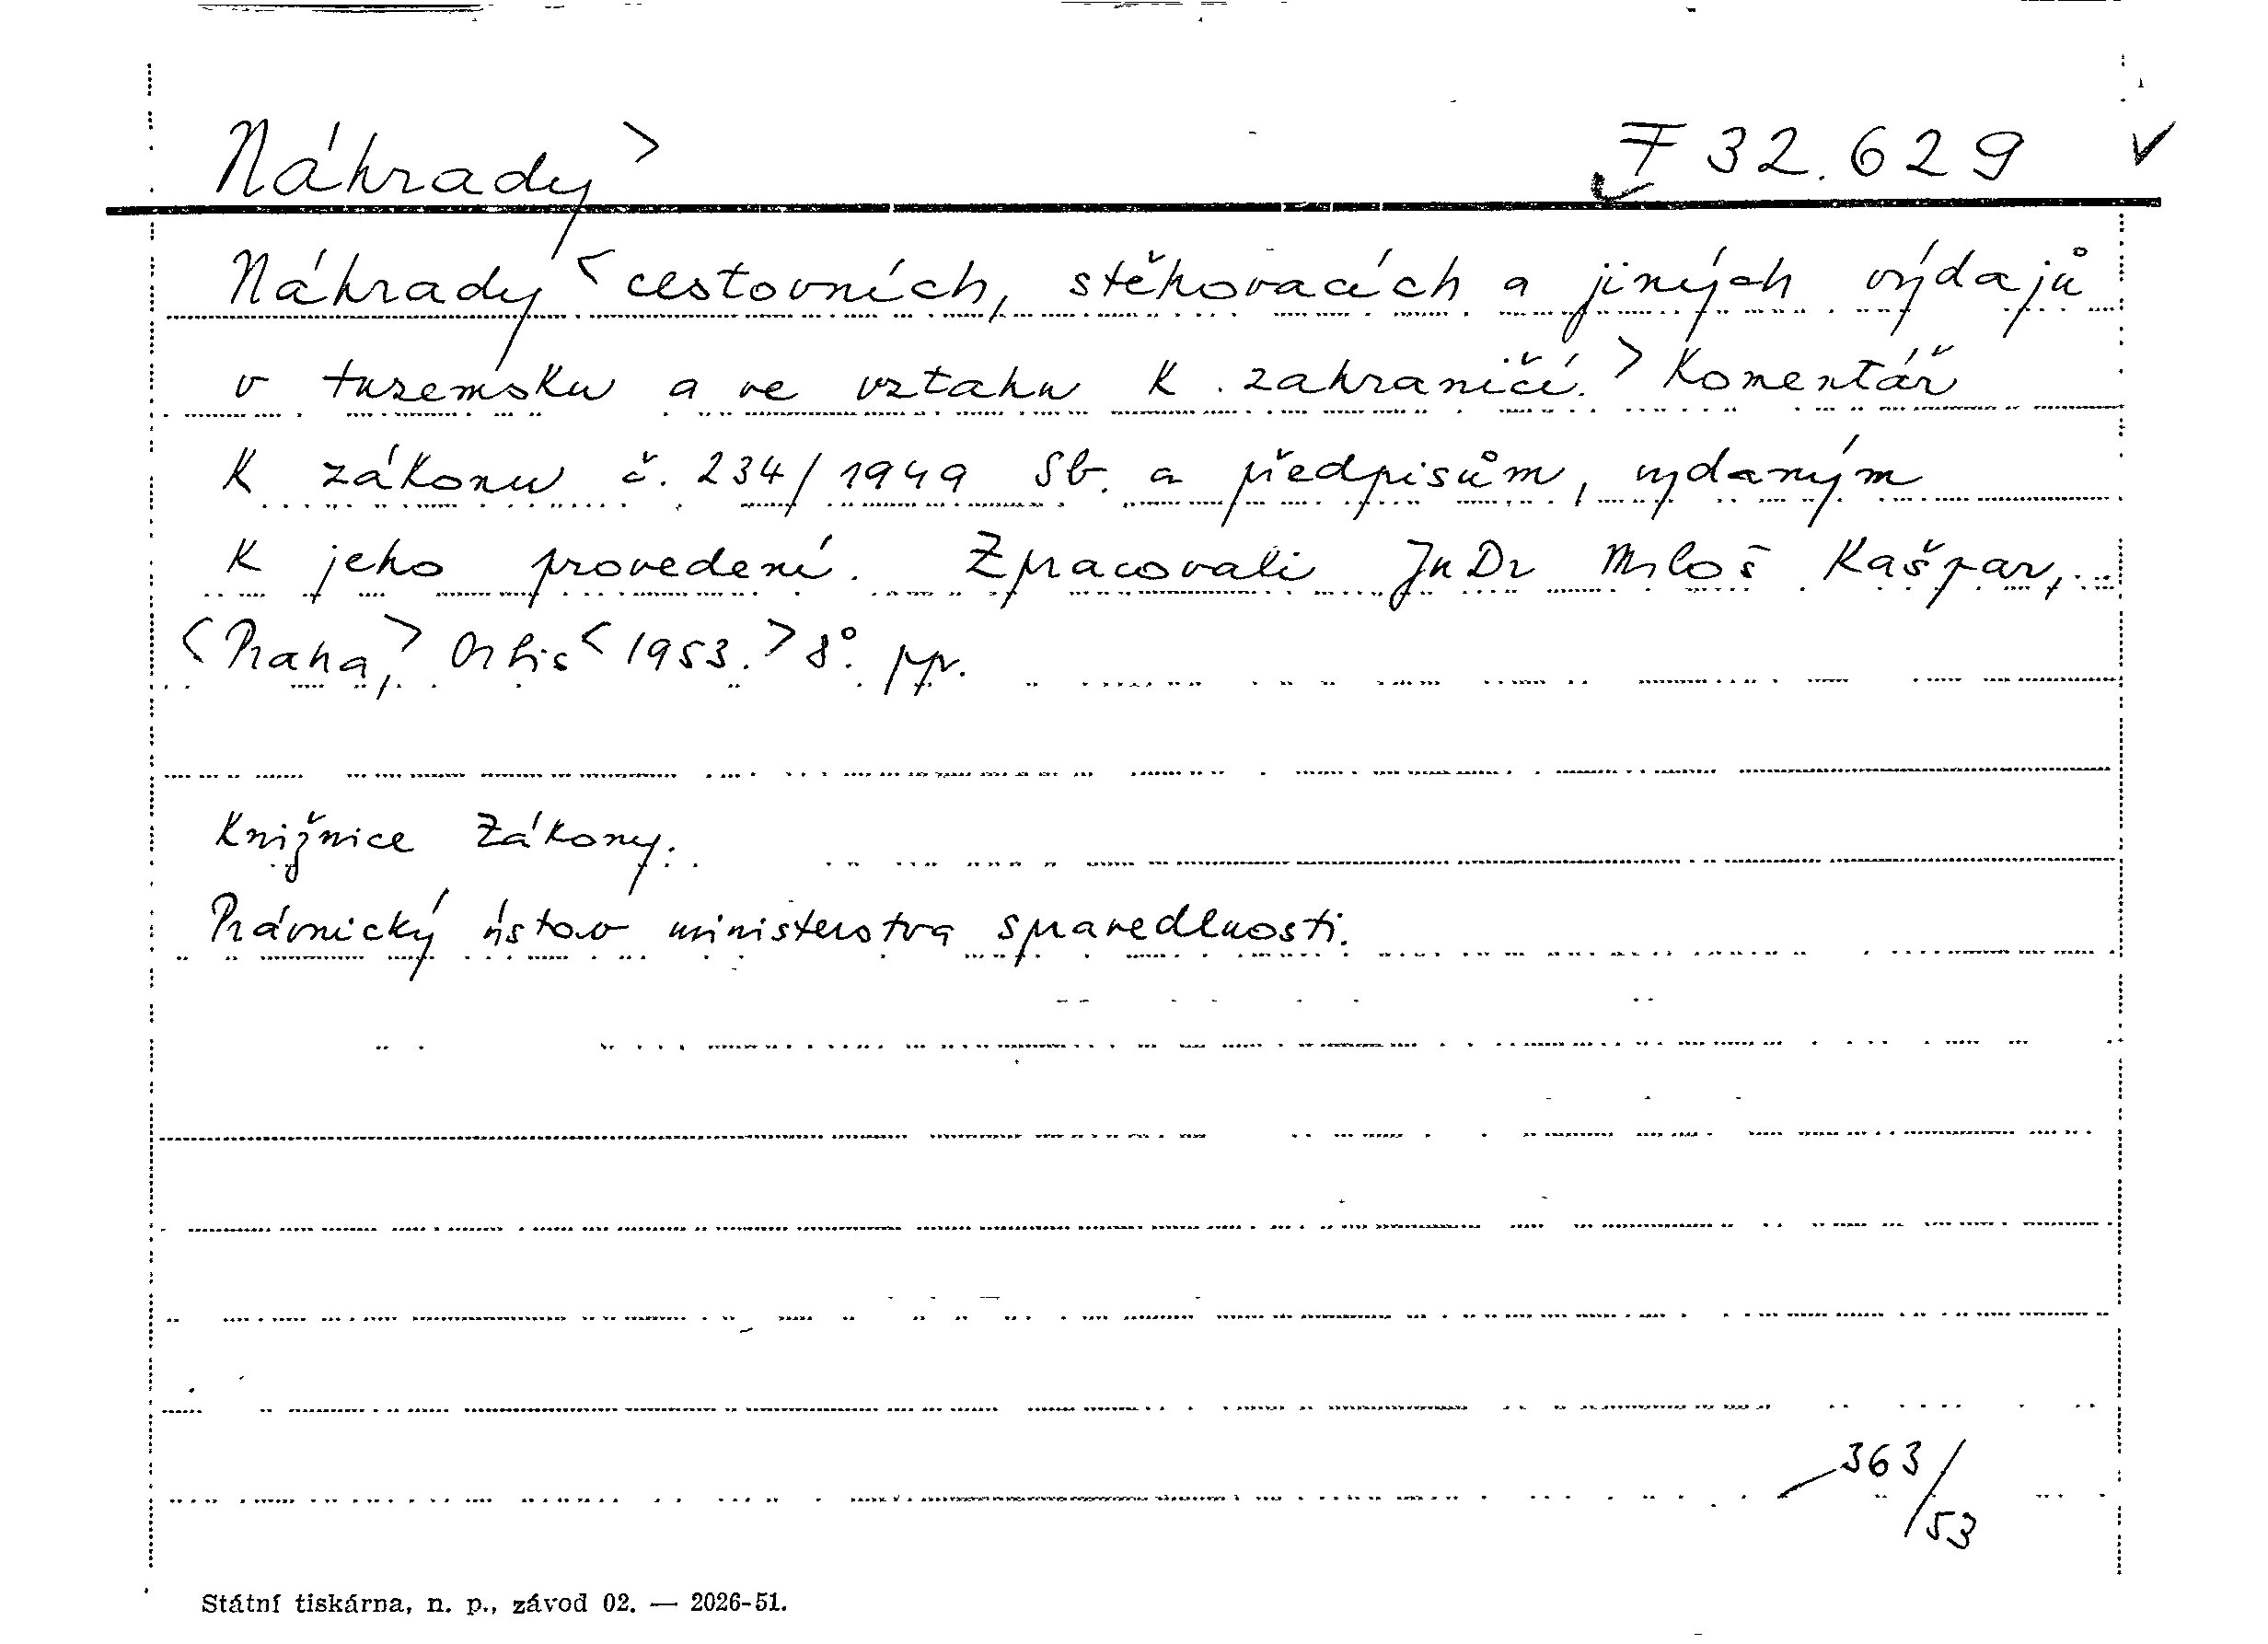 Náhrady> F 32.629 ✓
Náhrady < cestovních, stěhovacích a jiných výdajů
v tuzemsku a ve vztahu k zahraničí.> Komentář
k zákonu č. 234/1949 Sb. a předpisům, vydaným
k jeho provedení. Zpracovali JuDr Miloš Kašpar,...
<Praha,> Orbis <1953.> 8°. ppr.
Knižnice Zákony.
Právnický ústav ministerstva spravedlnosti.
363/53
Státní tiskárna, n. p., závod 02. — 2026-51.